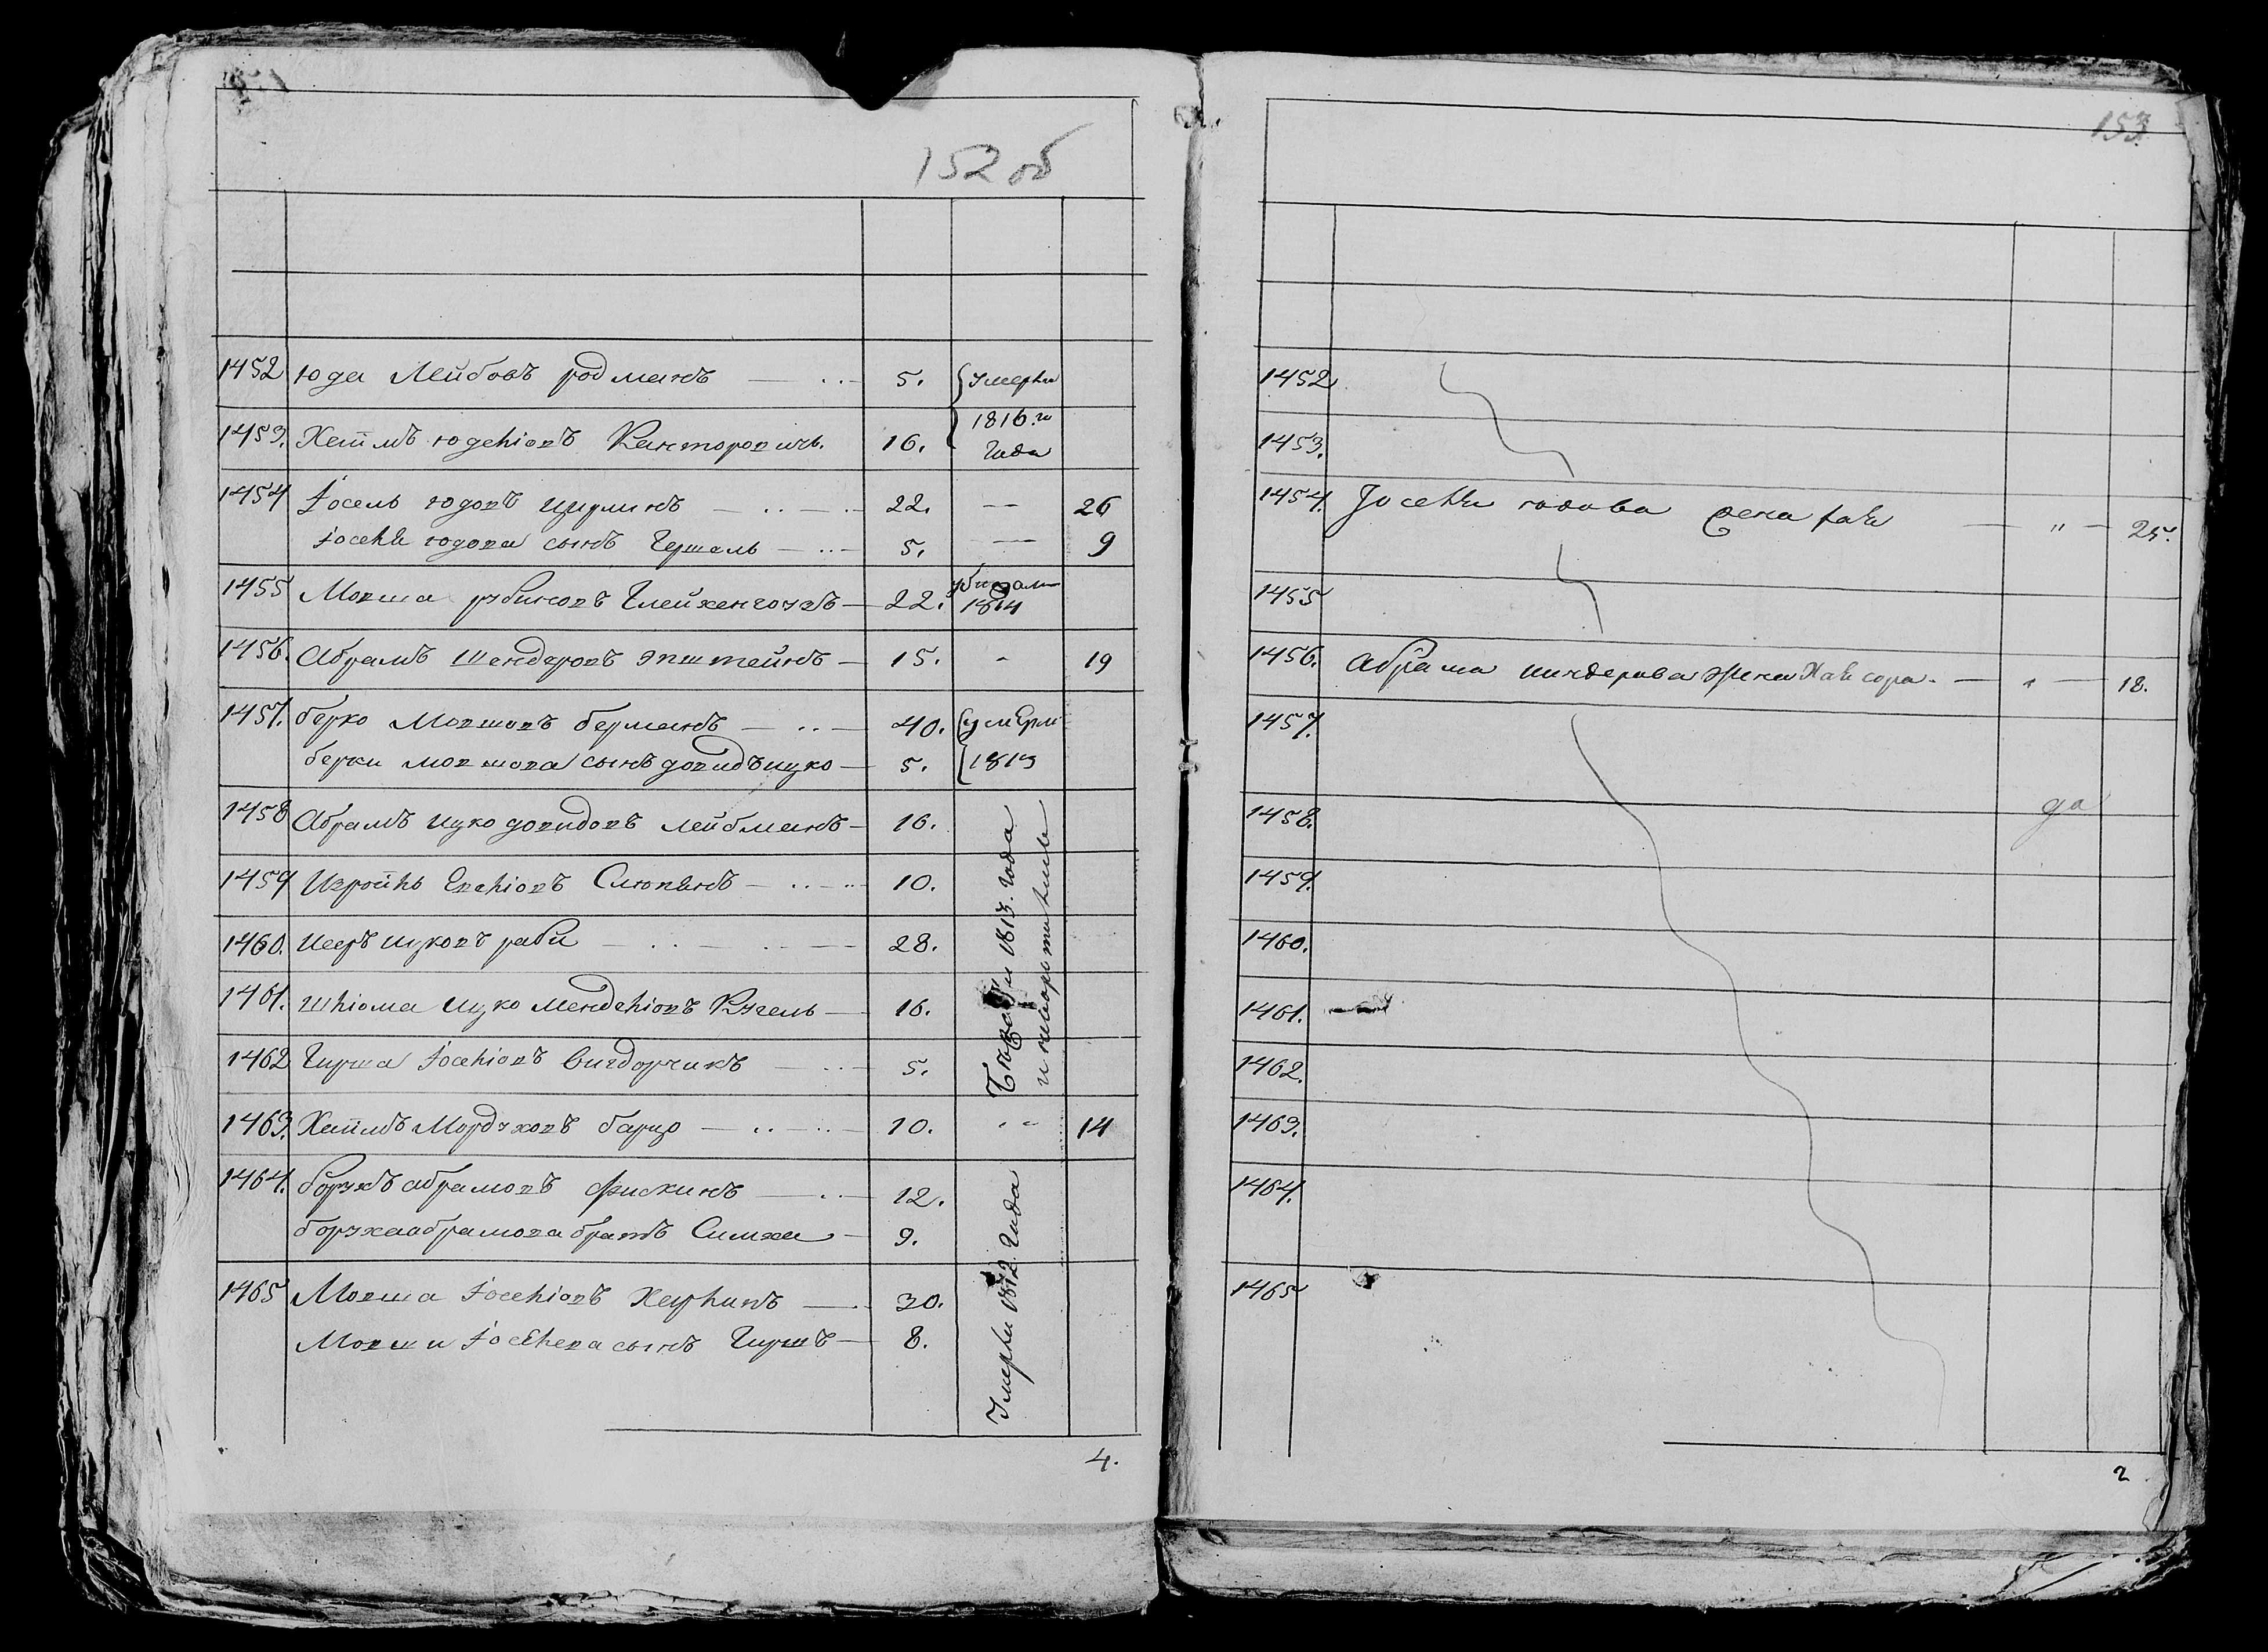 152 об
1452 Юда Лейбовъ родманъ 5. Умерли
1816.го
1453. Хаимъ юделіовъ Канторовичъ. 16. Года
1454 Іосель юдовъ цирлинъ 22. 26
Іоселя юдова сынъ Гершель 5. 9
1455 Мовша рубиновъ Глейхенгаузъ 22. 1814
1456. Абрамъ Шендеровъ Эпштейнъ 15. 19
1457. берко Мовшовъ берманъ 40. умерли
берки мовшова сынъ довидъ ицко 5. 1813
1458 Абрамъ ицко довидовъ лейбманъ 16.
1459 Израиль 10.
1460. ицковъ раби 28.
1461. Шліома ицко Менделіовъ Кугель 16.
1462 Гирша Іоселіовъ Вигдорчикъ 5.
1463. Хаимъ Мордуховъ 10. 14
1464. борухъ абрамовъ Фискинъ 12.
боруха абрамова братъ Симха 9.
1465 Мовша Іоселіовъ 30.
Мовши Іоселева сынъ Гиршъ 8.
1813. года
Умерли 1812 Года
4.
153.
1452.
1453.
1454. Іоселя юдова жена 25.
1455
1456. Абрама шендерова жена Хая сора. 18.
1457.
1458.
1459.
1460.
1461.
1462.
1463.
1464.
1465
2